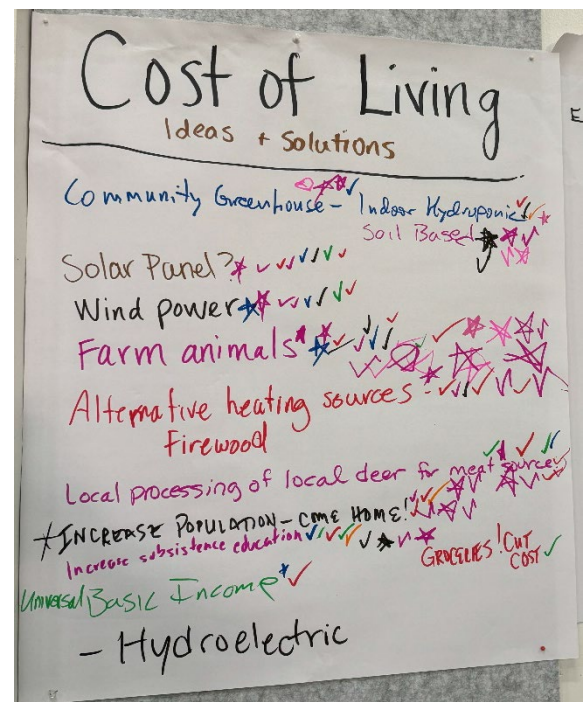 Cost of Living
Ideas + Solutions
Community Greenhouse - Indoor Hydroponic
Soil Based
Solar Panel?
Wind power
Farm animals
Alternative heating sources -
Firewood
Local processing of local deer for meat source
INCREASE POPULATION - COME HOME!
Increase subsistence education
GROCERIES! CUT
COST
Universal Basic Income
- Hydroelectric
E